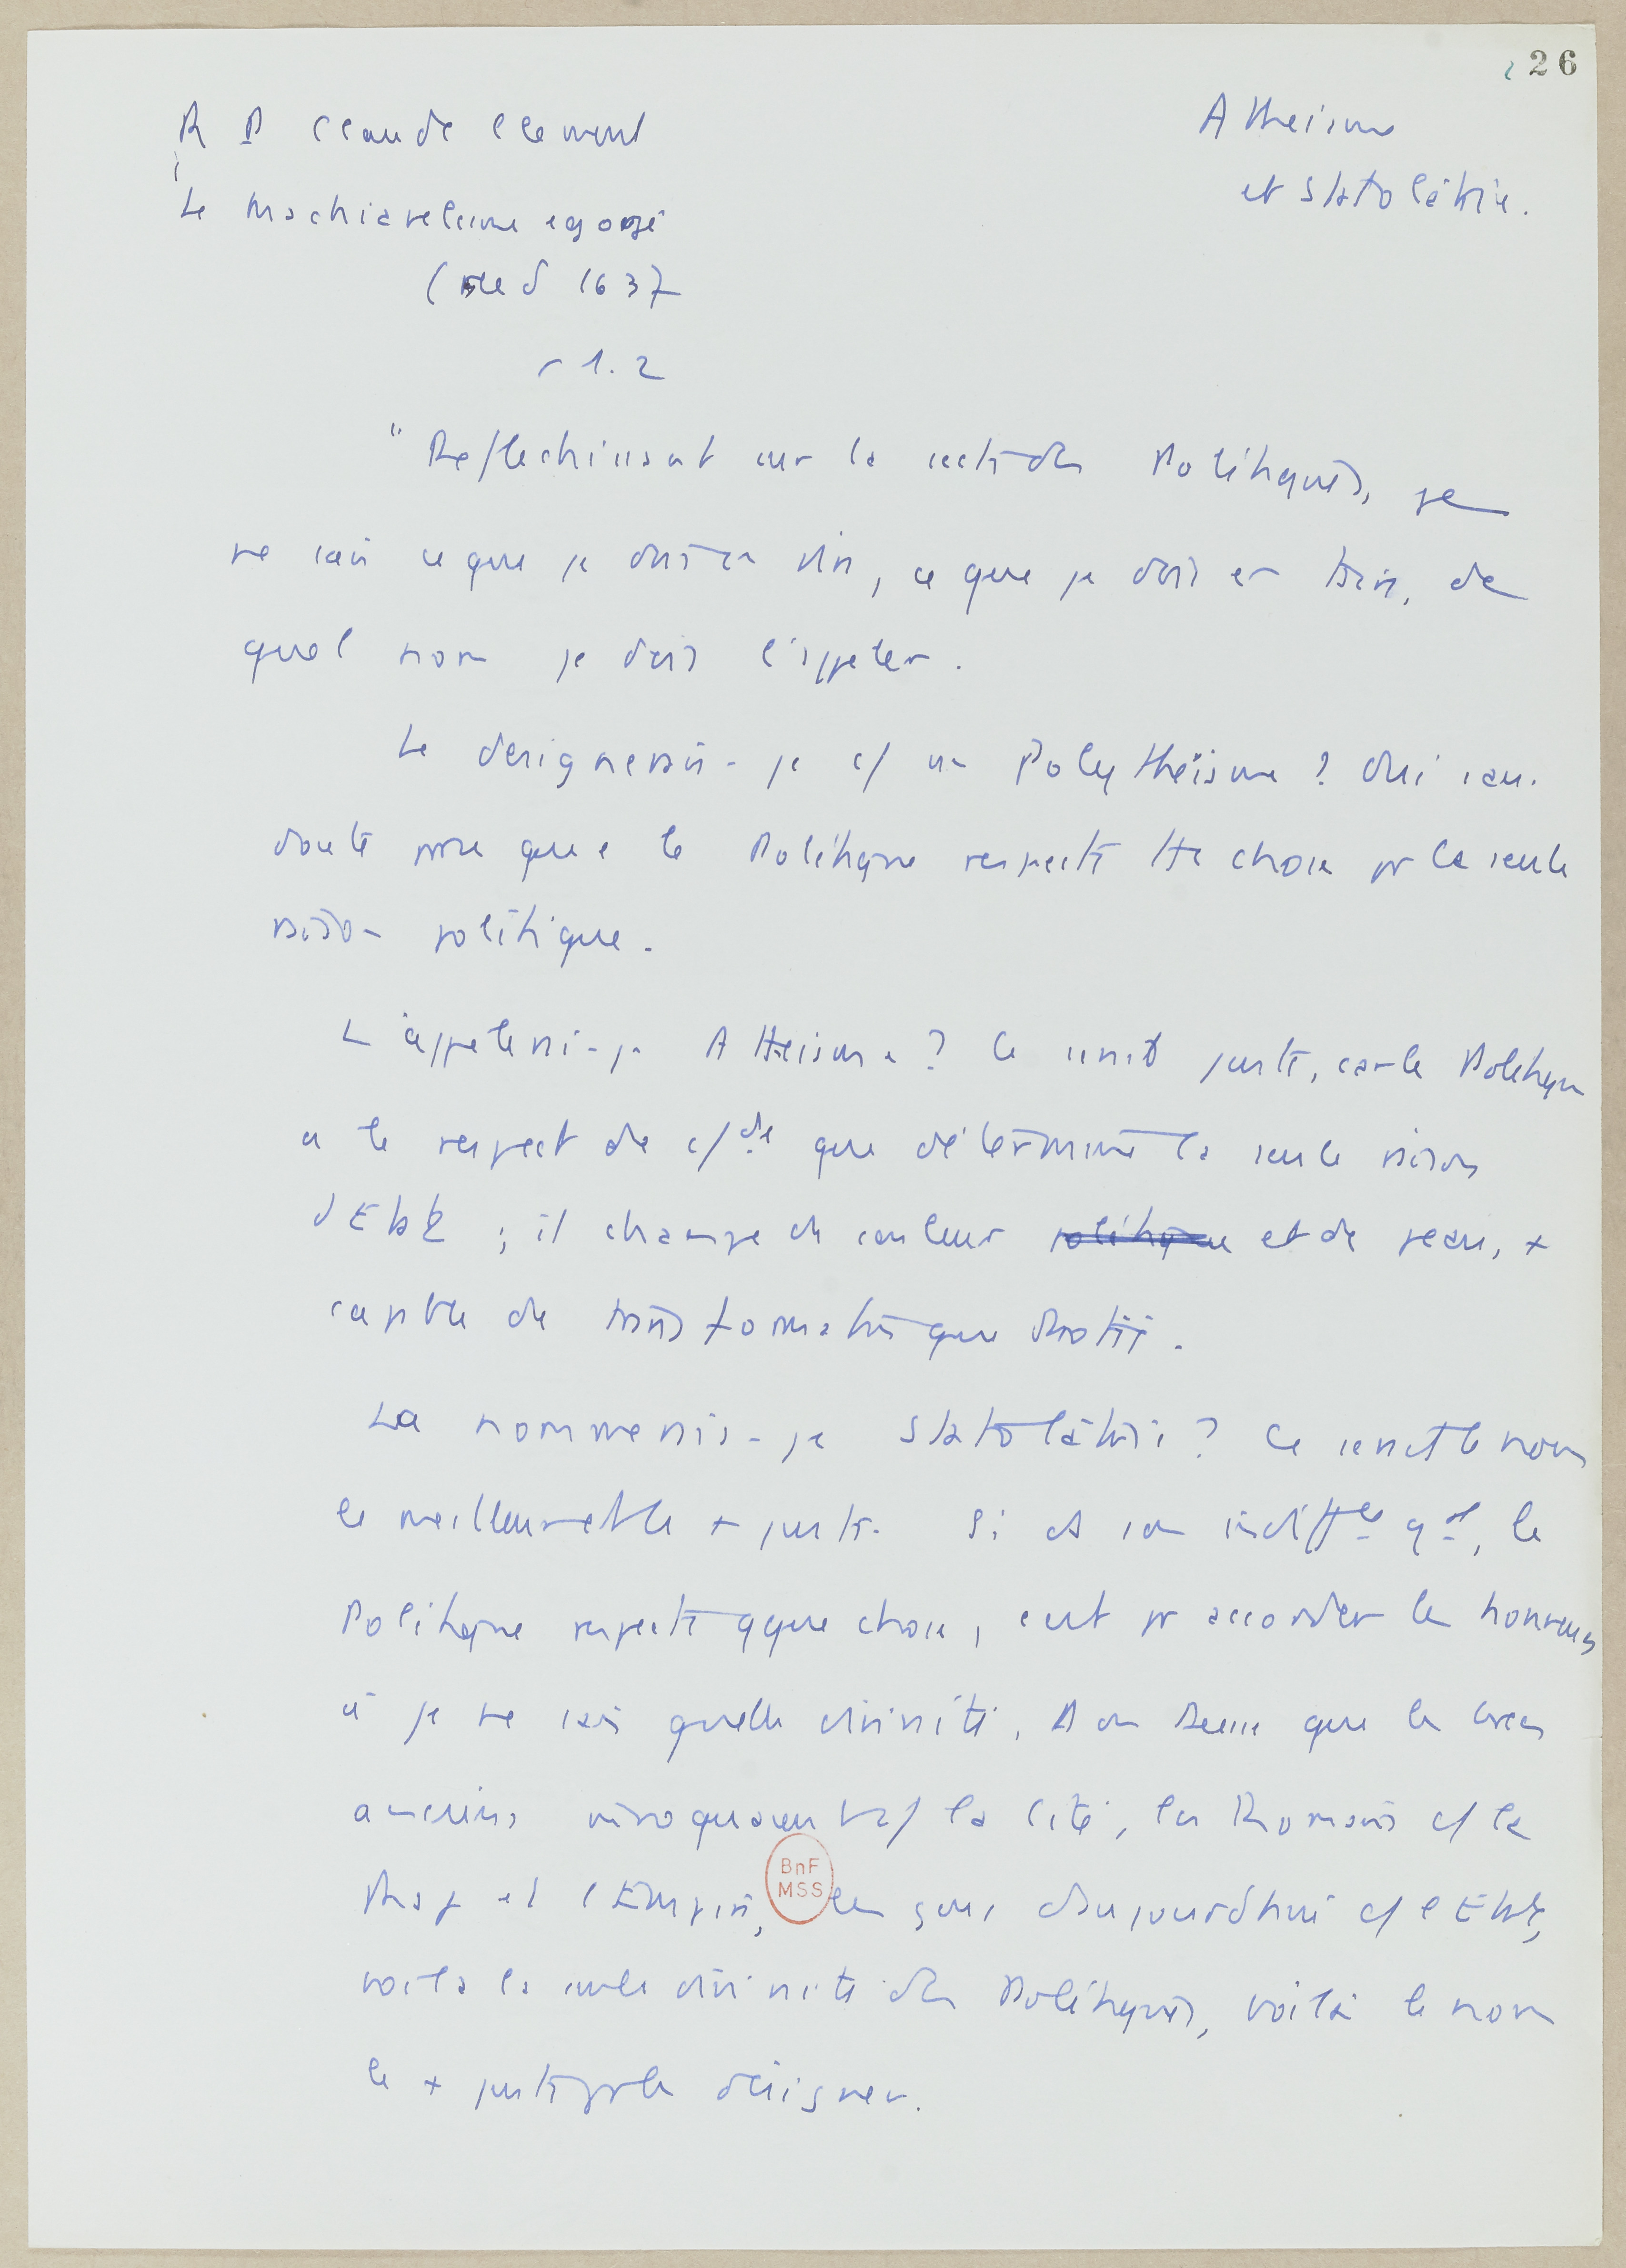 226
R P Claude Clement
Atheisme
et statolâtrie.
Le Machiavelisme egorgé
(1637
1.2
"Reflechissant sur la secte des Politiques, je
ne sais ce que je dois en dire, ce que je dois en taire, de
quel nom je dois l'appeler.
Le designerais-je c/ un Polytheïsme ? Oui sans
doute que le Politique respecte tte chose pr la seule
raison politique.
L'appellerai-je Atheisme ? Ce serait juste, car le Politique
a le respect de c/de que détermine la seule raison
d'Etat ; il change de couleur politique et de peau, +
capable de transformations que Protée.
La nommerais-je Statolâtrie ? Ce serait le nom
le meilleur et le + juste. Si ds son indiffce gale, le
Politique respecte qque chose, c'est pr accorder les honneurs
à je ne sais quelle divinité, que les Grecs
anciens invoquaient c/ la Cité, les Romains c/ la
Rsp et l'Empire, les gens d'aujourd'hui c/ l'Etat,
voilà la seule divinité des Politiques, voilà le nom
le + juste pr le désigner.
BnF
MSS